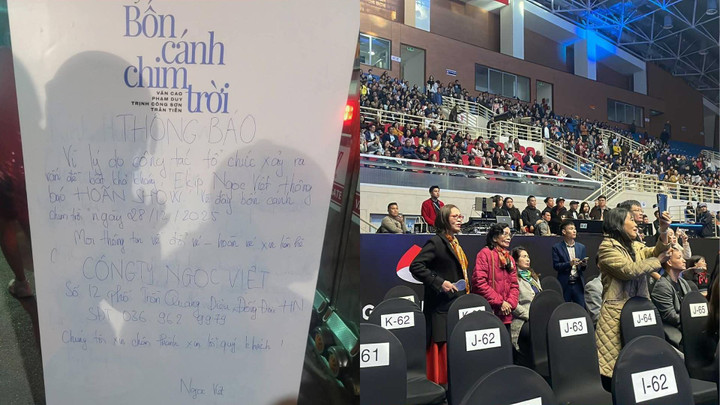 Bốn
cánh
chim
trời
VĂN CAO
PHẠM DUY
TRỊNH CÔNG SƠN
TRẦN TIẾN
THÔNG BÁO
Vì lý do công tác tổ chức xảy ra
vấn đề bất khả kháng Ekip Ngọc Việt thông
báo HOÃN SHOW
chim trời ngày 28/12/2025
Mọi thông tin về đổi vé - hoàn vé xin liên hệ
CÔNG TY NGỌC VIỆT
Số 12 phố Trần Quang Diệu, Đống Đa, HN
Sđt 036 962 9979
Chúng tôi xin chân thành xin lỗi quý khách!
Ngọc Việt
K-62
J-62
J-63
J-64
J-65
61
J-62
I-62